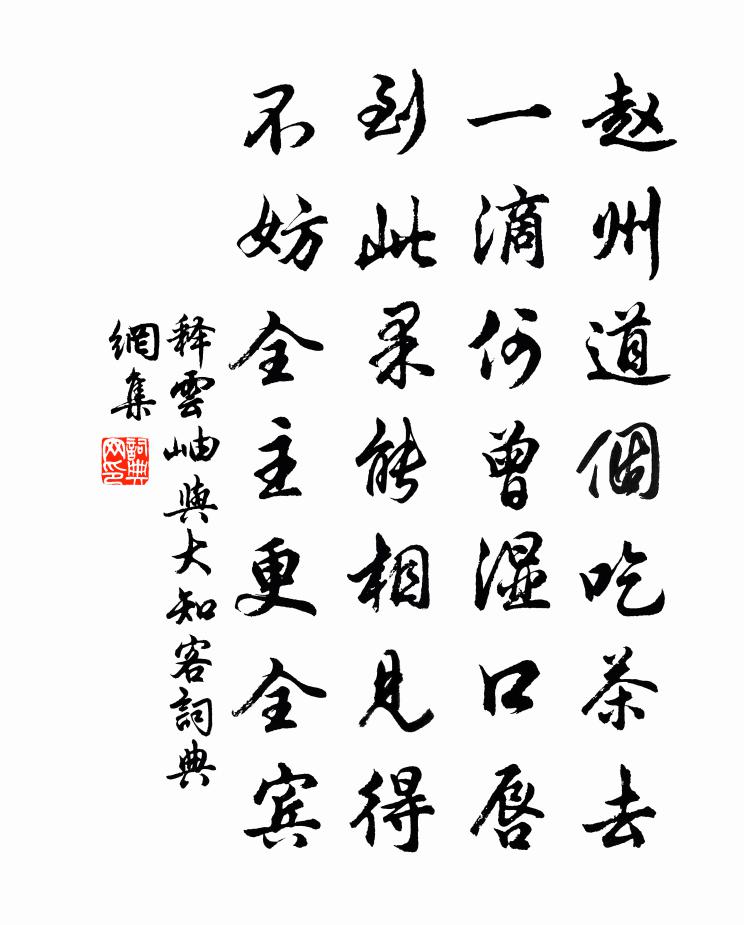 赵州道個吃茶去
一滴何曾湿口唇
到此果能相見得
不妨全主更全宾
释雲岫與大知客詞典
網集
詞典网印